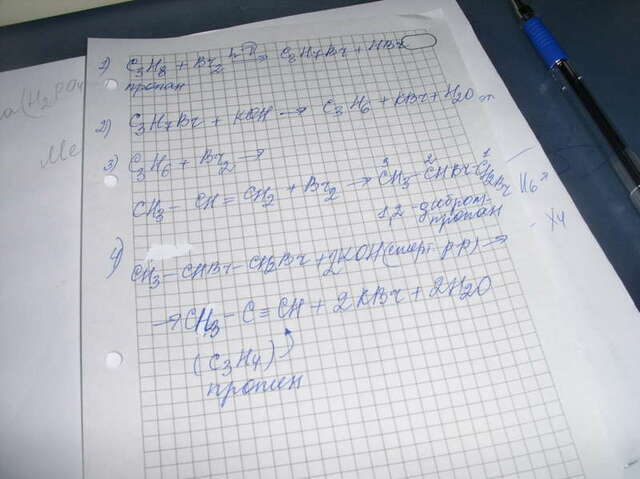 1) C3H8 + Br2 → C3H7Br + HBr
пропан
2) C3H7Br + KOH → C3H6 + KBr + H2O
3) C3H6 + Br2 →
CH3 - CH = CH2 + Br2 → CH3 - CHBr - CH2Br
3 2 1
1,2-дибром-
пропан
4) CH3 - CHBr - CH2Br + 2KOH (спирт. р-р) →
→ CH3 - C ≡ CH + 2KBr + 2H2O
(C3H4)
пропен
Ме